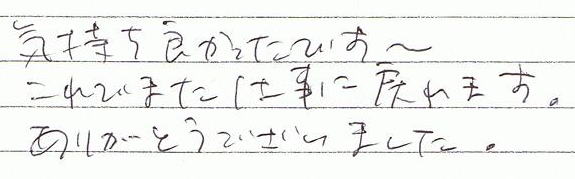 気持ち良かったです〜
これでまた仕事に戻れます。
ありがとうございました。